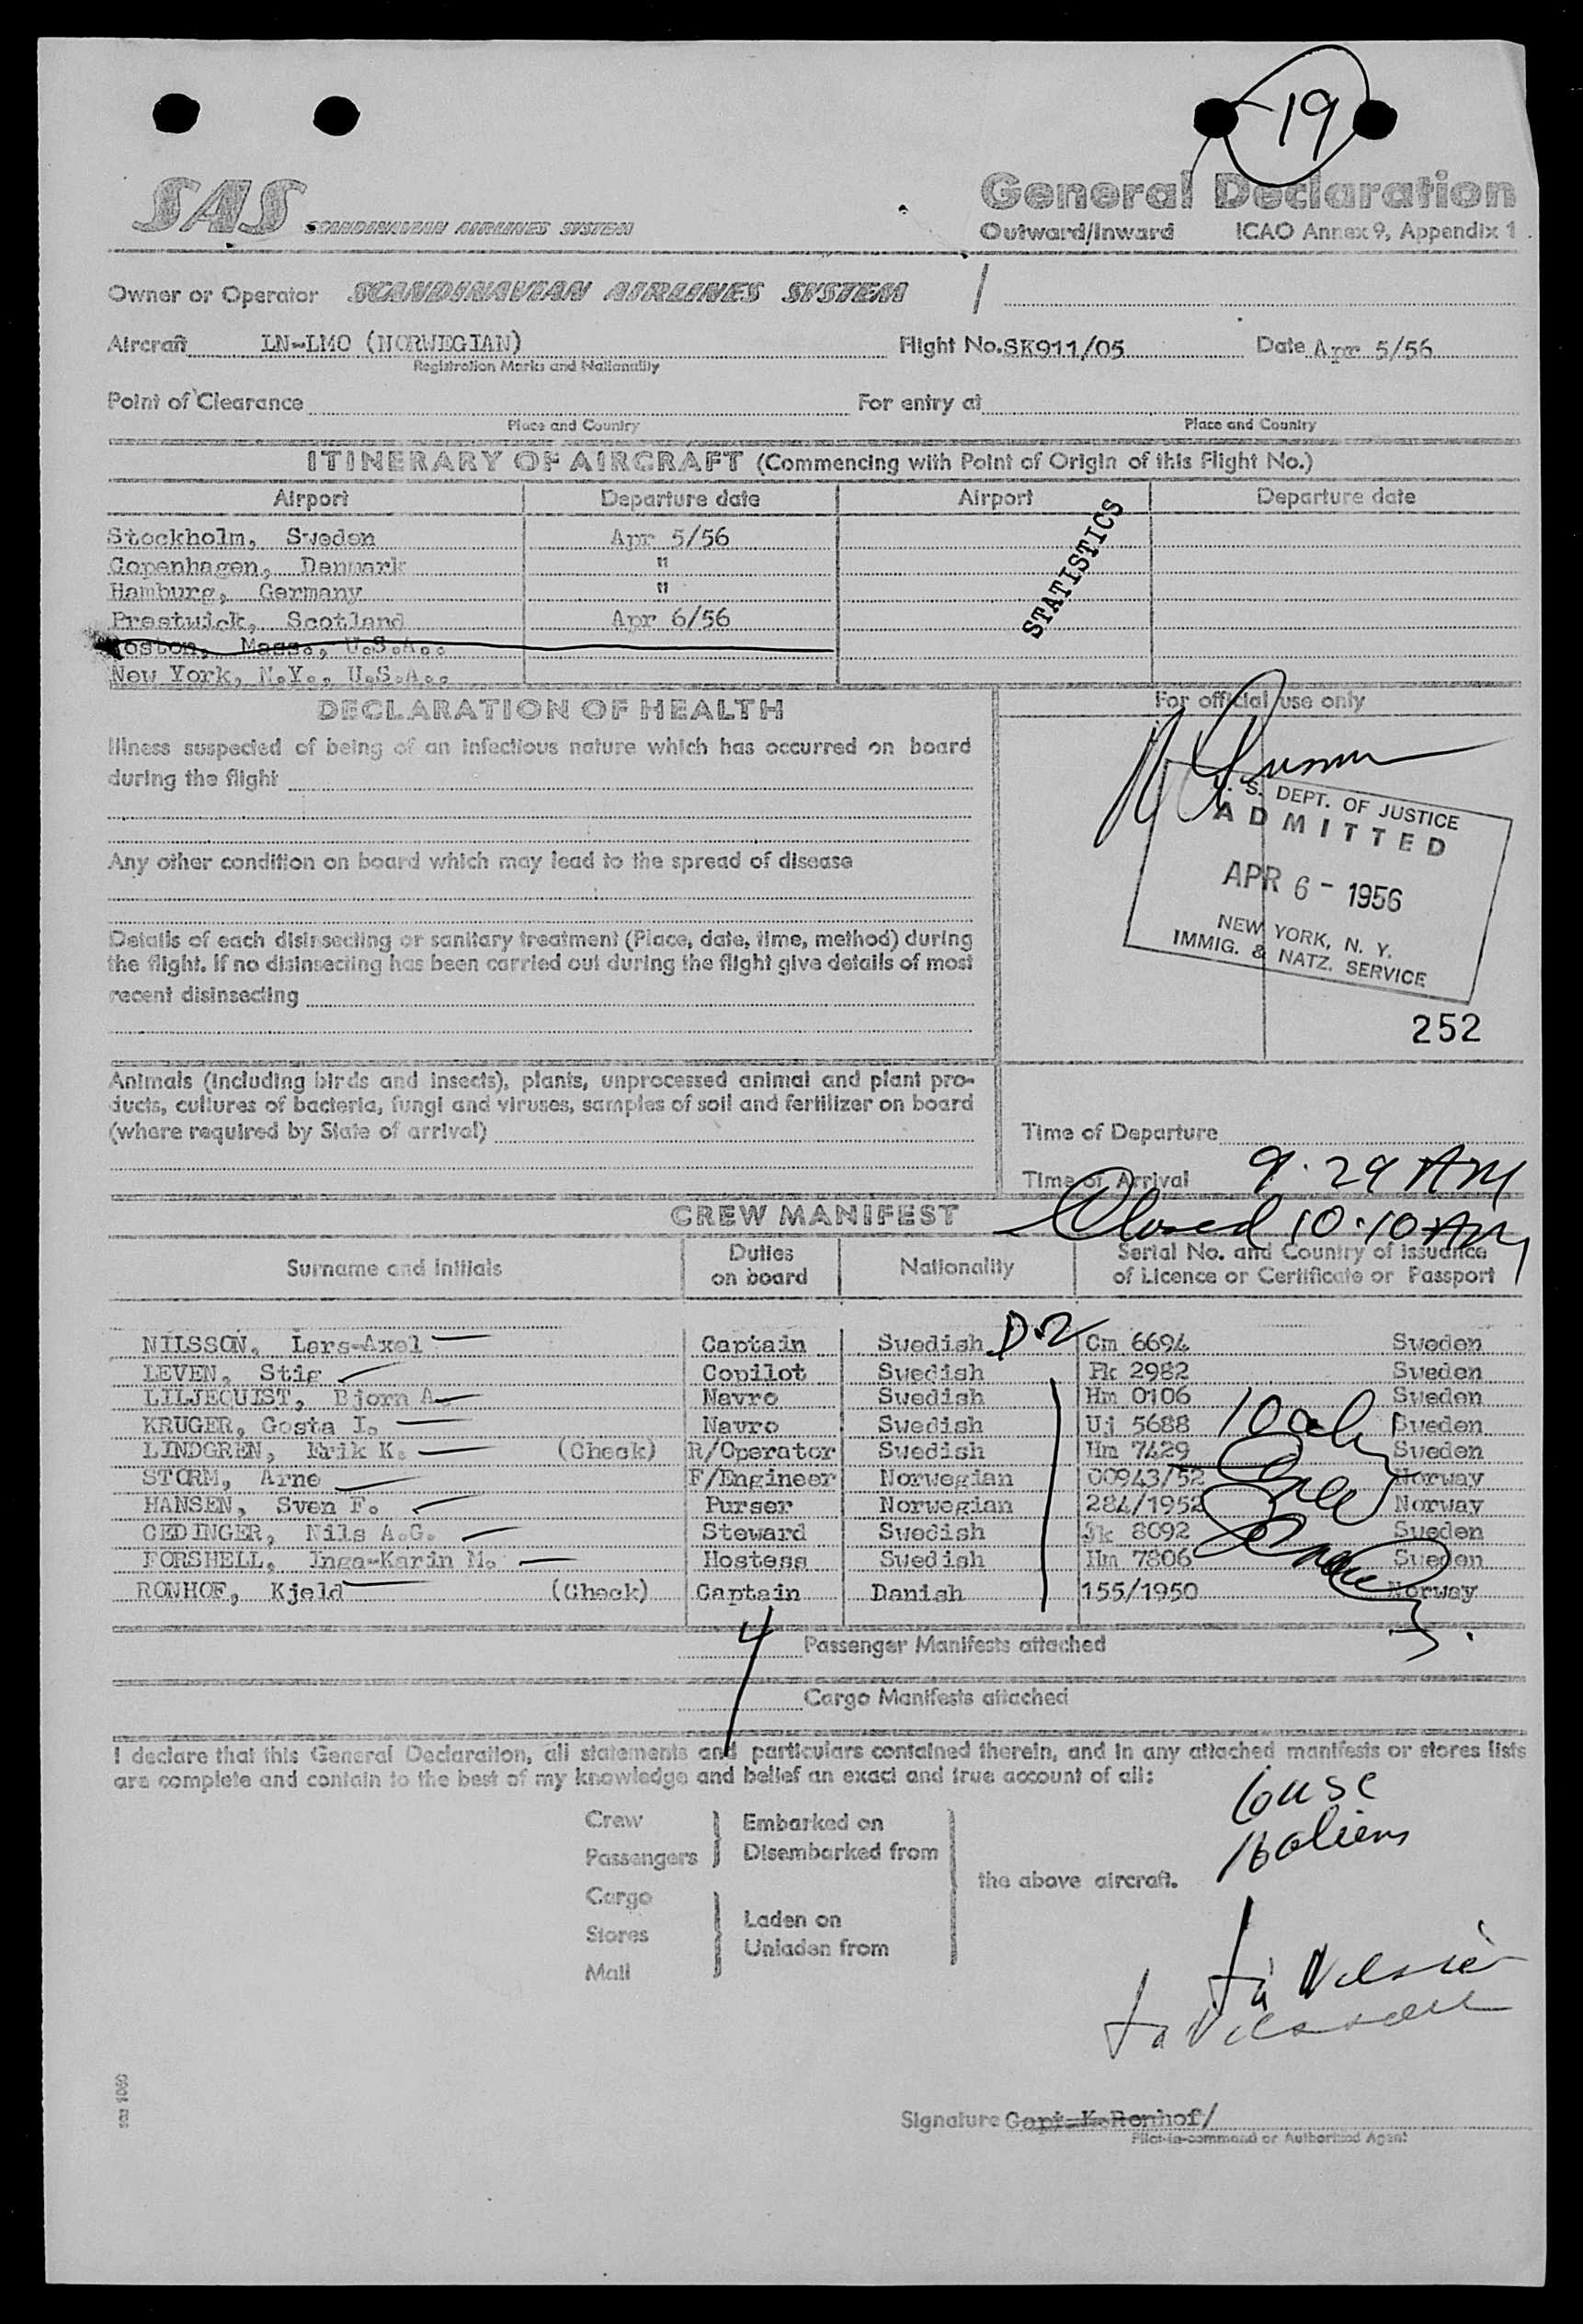 19
SAS SCANDINAVIAN AIRLINES SYSTEM
General Declaration
Outward/Inward ICAO Annex 9, Appendix 1
Owner or Operator SCANDINAVIAN AIRLINES SYSTEM
Aircraft LN-LMO (NORWEGIAN) Flight No. SK911/05 Date Apr 5/56
Registration Marks and Nationality
Point of Clearance For entry at
Place and Country Place and Country
ITINERARY OF AIRCRAFT (Commencing with Point of Origin of this Flight No.)
Airport Departure date Airport Departure date
Stockholm, Sweden Apr 5/56
Copenhagen, Denmark "
Hamburg, Germany "
Prestwick, Scotland Apr 6/56
Boston, Mass., U.S.A..
New York, N.Y., U.S.A..
STATISTICS
DECLARATION OF HEALTH
Illness suspected of being of an infectious nature which has occurred on board
during the flight
Any other condition on board which may lead to the spread of disease
Details of each disinsecting or sanitary treatment (Place, date, time, method) during
the flight. If no disinsecting has been carried out during the flight give details of most
recent disinsecting
For official use only
U. S. DEPT. OF JUSTICE
ADMITTED
APR 6 - 1956
NEW YORK, N. Y.
IMMIG. & NATZ. SERVICE
252
Animals (including birds and insects), plants, unprocessed animal and plant pro-
ducts, cultures of bacteria, fungi and viruses, samples of soil and fertilizer on board
(where required by State of arrival)
Time of Departure
Time of Arrival 9.29 AM
Closed 10:10 AM
CREW MANIFEST
Surname and Initials Duties on board Nationality Serial No. and Country of issuance of Licence or Certificate or Passport
NILSSON, Lars-Axel Captain Swedish D-2 Cm 6694 Sweden
LEVEN, Stig Copilot Swedish Fk 2982 Sweden
LILJEQUIST, Bjorn A. Navro Swedish Hm 0106 Sweden
KRUGER, Gosta I. Navro Swedish Uj 5688 Sweden
LINDGREN, Erik K. (Check) R/Operator Swedish Hm 7429 Sweden
STORM, Arne F/Engineer Norwegian 00943/52 Norway
HANSEN, Sven F. Purser Norwegian 284/1952 Norway
CEDINGER, Nils A.G. Steward Swedish 8092 Sweden
FORSHELL, Inga-Karin M. Hostess Swedish Hm 7806 Sweden
RONHOF, Kjeld (Check) Captain Danish 155/1950 Norway
4 Passenger Manifests attached
Cargo Manifests attached
I declare that this General Declaration, all statements and particulars contained therein, and in any attached manifests or stores lists
are complete and contain to the best of my knowledge and belief an exact and true account of all:
Crew
Passengers
Embarked on
Disembarked from
Cargo
Stores
Mail
Laden on
Unladen from
the above aircraft.
6 USC
16 aliens
Signature Capt. K. Ronhof/
Pilot-in-command or Authorized Agent